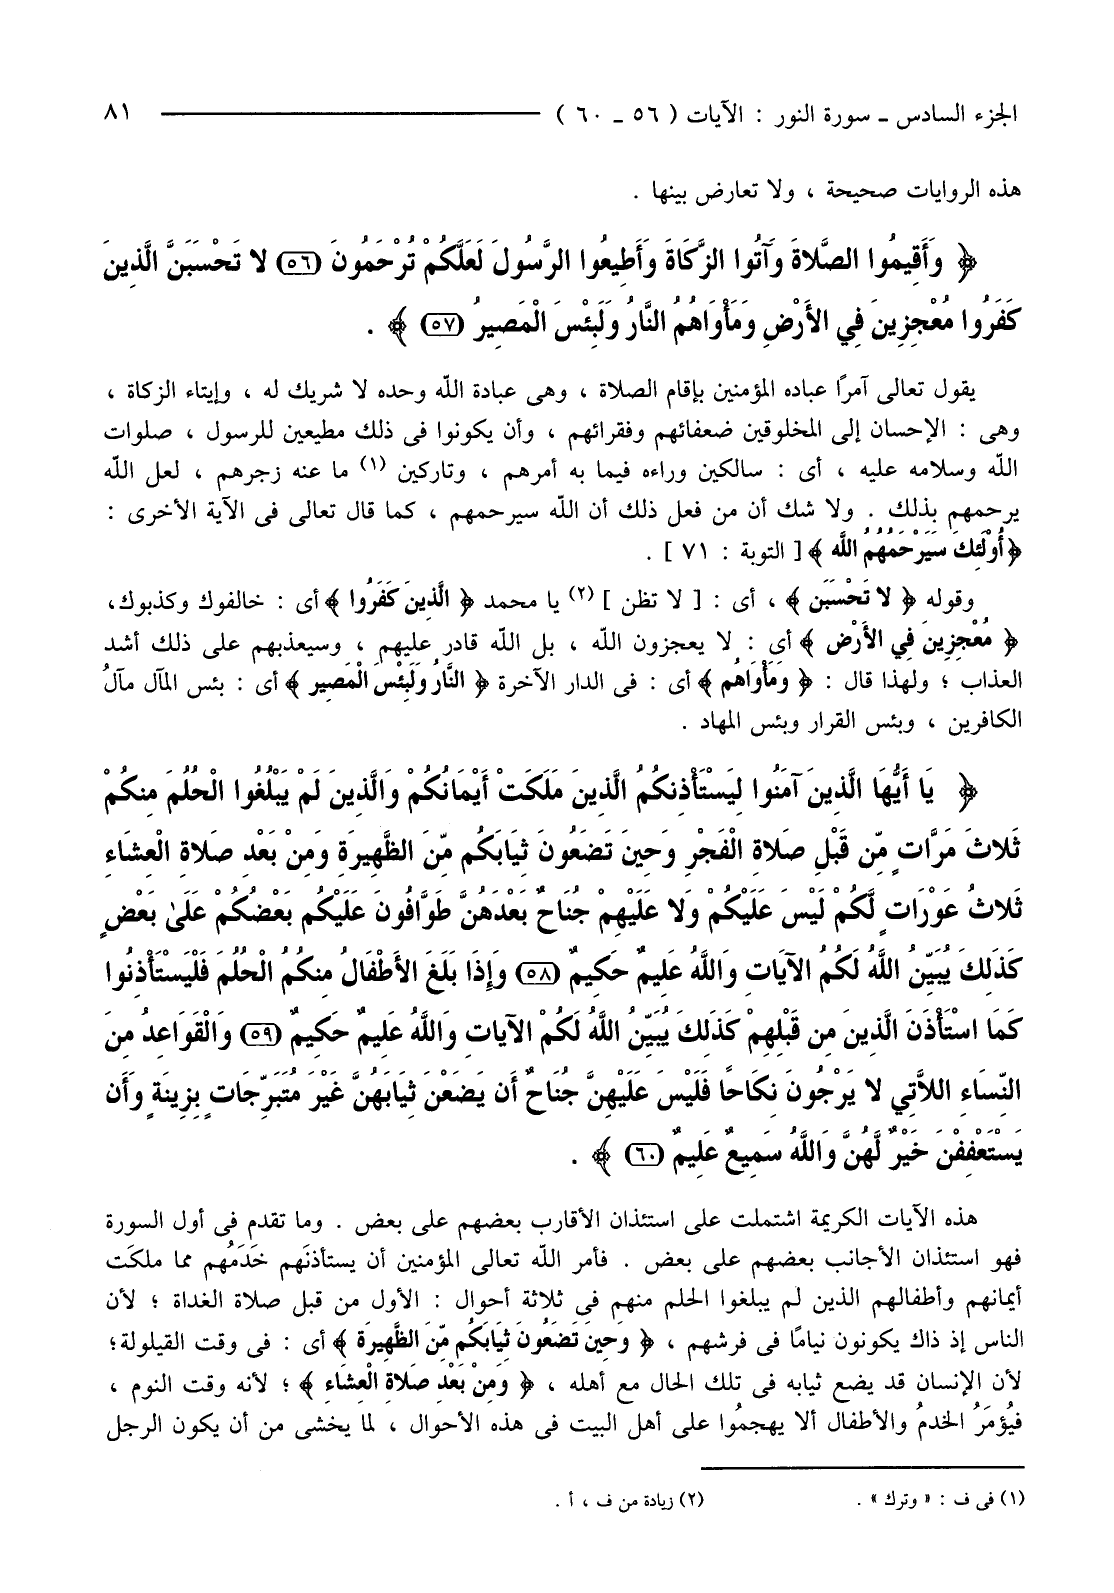 الجزء السادس ـ سورة النور : الآيات ( ٥٦ ـ ٦٠ ) ٨١
هذه الروايات صحيحة ، ولا تعارض بينها .
﴿ وَأَقِيمُوا الصَّلاةَ وَآتُوا الزَّكَاةَ وَأَطِيعُوا الرَّسُولَ لَعَلَّكُمْ تُرْحَمُونَ (٥٦) لا تَحْسَبَنَّ الَّذِينَ
كَفَرُوا مُعْجِزِينَ فِي الأَرْضِ وَمَأْوَاهُمُ النَّارُ وَلَبِئْسَ الْمَصِيرُ (٥٧) ﴾ .
يقول تعالى آمرًا عباده المؤمنين بإقام الصلاة ، وهى عبادة اللّه وحده لا شريك له ، وإيتاء الزكاة ،
وهى : الإحسان إلى المخلوقين ضعفائهم وفقرائهم ، وأن يكونوا فى ذلك مطيعين للرسول ، صلوات
الله وسلامه عليه ، أى : سالكين وراءه فيما به أمرهم ، وتاركين (١) ما عنه زجرهم ، لعل الله
يرحمهم بذلك . ولا شك أن من فعل ذلك أن اللّه سيرحمهم ، كما قال تعالى فى الآية الأخرى :
﴿ أُوْلَئِكَ سَيَرْحَمُهُمُ اللَّه ﴾ [ التوبة : ٧١ ] .
وقوله ﴿ لا تَحْسَبَن ﴾ ، أى : [ لا تظن ] (٢) يا محمد ﴿ الَّذِينَ كَفَرُوا ﴾ أى : خالفوك وكذبوك،
﴿ مُعْجِزِينَ فِي الأَرْض ﴾ أى : لا يعجزون اللّه ، بل اللّه قادر عليهم ، وسيعذبهم على ذلك أشد
العذاب ؛ ولهذا قال : ﴿ وَمَأْوَاهُم ﴾ أى : فى الدار الآخرة ﴿ النَّارُ وَلَبِئْسَ الْمَصِير ﴾ أى : بئس المآل مآلُ
الكافرين ، وبئس القرار وبئس المهاد .
﴿ يَا أَيُّهَا الَّذِينَ آمَنُوا لِيَسْتَأْذِنكُمُ الَّذِينَ مَلَكَتْ أَيْمَانُكُمْ وَالَّذِينَ لَمْ يَبْلُغُوا الْحُلُمَ مِنكُمْ
ثَلاثَ مَرَّاتٍ مِّن قَبْلِ صَلاةِ الْفَجْرِ وَحِينَ تَضَعُونَ ثِيَابَكُم مِّنَ الظَّهِيرَةِ وَمِنْ بَعْدِ صَلاةِ الْعِشَاءِ
ثَلاثُ عَوْرَاتٍ لَّكُمْ لَيْسَ عَلَيْكُمْ وَلا عَلَيْهِمْ جُنَاحٌ بَعْدَهُنَّ طَوَّافُونَ عَلَيْكُم بَعْضُكُمْ عَلَىٰ بَعْضٍ
كَذَلِكَ يُبَيِّنُ اللَّهُ لَكُمُ الآيَاتِ وَاللَّهُ عَلِيمٌ حَكِيمٌ (٥٨) وَإِذَا بَلَغَ الأَطْفَالُ مِنكُمُ الْحُلُمَ فَلْيَسْتَأْذِنُوا
كَمَا اسْتَأْذَنَ الَّذِينَ مِن قَبْلِهِمْ كَذَلِكَ يُبَيِّنُ اللَّهُ لَكُمْ الآيَاتِ وَاللَّهُ عَلِيمٌ حَكِيمٌ (٥٩) وَالْقَوَاعِدُ مِنَ
النِّسَاءِ اللاَّتِي لا يَرْجُونَ نِكَاحًا فَلَيْسَ عَلَيْهِنَّ جُنَاحٌ أَن يَضَعْنَ ثِيَابَهُنَّ غَيْرَ مُتَبَرِّجَاتٍ بِزِينَةٍ وَأَن
يَسْتَعْفِفْنَ خَيْرٌ لَّهُنَّ وَاللَّهُ سَمِيعٌ عَلِيمٌ (٦٠) ﴾ .
هذه الآيات الكريمة اشتملت على استئذان الأقارب بعضهم على بعض . وما تقدم فى أول السورة
فهو استئذان الأجانب بعضهم على بعض . فأمر اللّه تعالى المؤمنين أن يستأذنَهم خَدَمُهم مما ملكَت
أيمانهم وأطفالهم الذين لم يبلغوا الحلم منهم فى ثلاثة أحوال : الأول من قبل صلاة الغداة ؛ لأن
الناس إذ ذاك يكونون نيامًا فى فرشهم ، ﴿ وَحِينَ تَضَعُونَ ثِيَابَكُم مِّنَ الظَّهِيرَة ﴾ أى : فى وقت القيلولة؛
لأن الإنسان قد يضع ثيابه فى تلك الحال مع أهله ، ﴿ وَمِنْ بَعْدِ صَلاةِ الْعِشَاءِ ﴾ ؛ لأنه وقت النوم ،
فيُؤمَرُ الخدمُ والأطفال ألا يهجمُوا على أهل البيت فى هذه الأحوال ، لما يخشى من أن يكون الرجل
(١) فى ف : « وترك » . (٢) زيادة من ف ، أ .